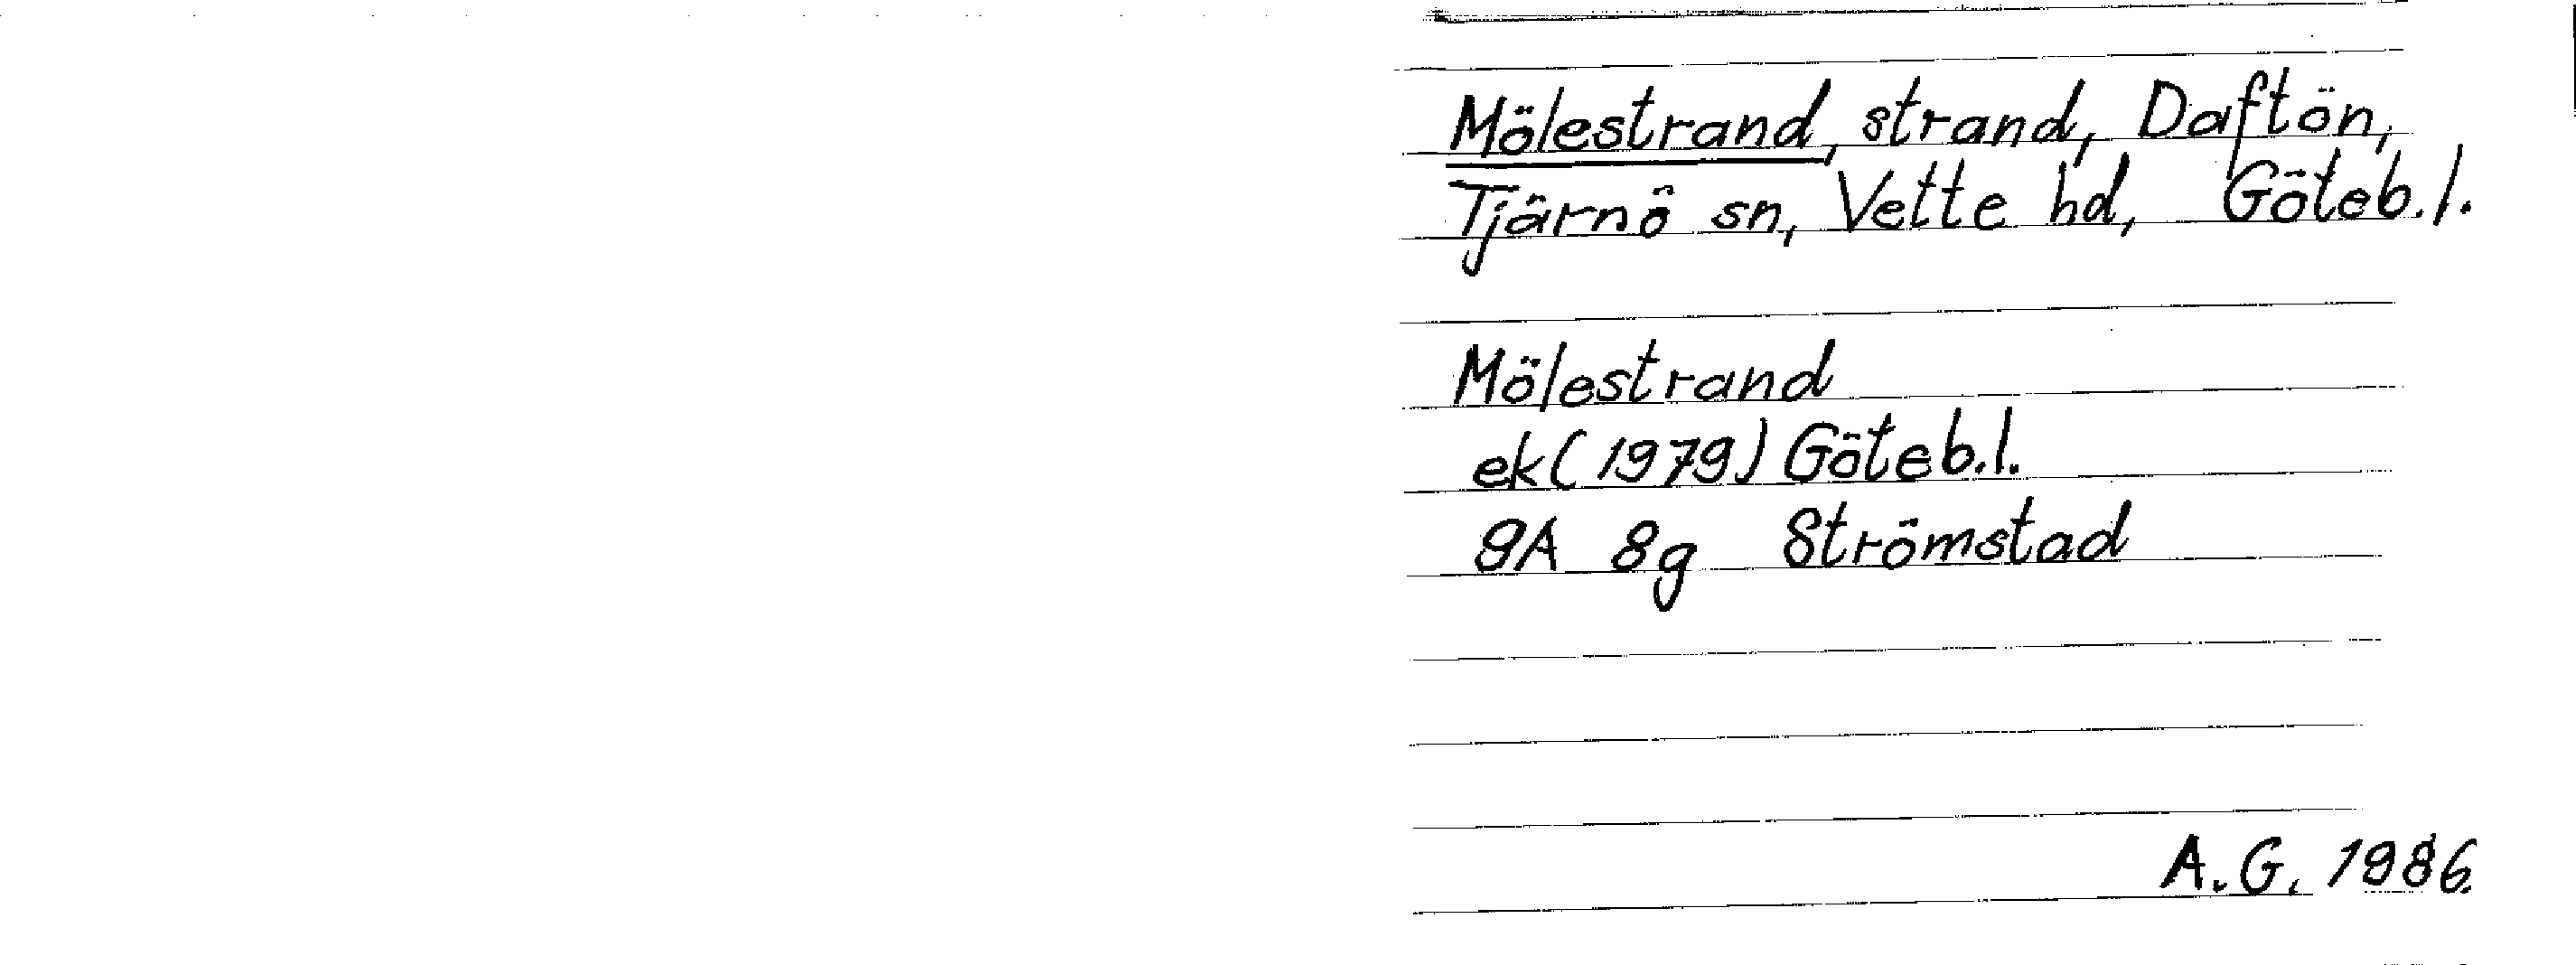 Mölestrand, strand, Daftön,
Tjärnö sn, Vette hd, Göteb.l.
Mölestrand
ek(1979) Göteb.l.
9A 8g Strömstad
A.G. 1986